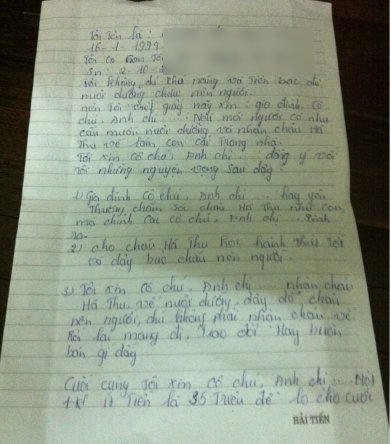 Tôi Tên là :
16-1-1999
Tôi có con Tôi
Sn: 2-10
Tôi không đủ khả năng và Tiền bạc để
nuôi dưỡng cháu nên người.
nên Tôi viết giấy này xin : gia đình. Cô
chú, Anh chị ... Nếu mọi người có nhu
cầu muốn nuôi dưỡng và nhận cháu Hà
Thu về làm con cái Trong nhà.
Tôi xin cô chú, Anh chị ... đồng ý với
Tôi những nguyện vọng sau đây
1) Gia đình cô chú, Anh chị ... hãy yêu
Thương chăm sóc cháu Hà Thu như con
mà chính cái cô chú, anh chị ... Sinh
ra.
2) cho cháu Hà Thu học hành thật tốt
và dạy bảo cháu nên người.
3) Tôi xin cô chú, Anh chị nhận cháu
Hà Thu, về nuôi dưỡng, dạy dỗ, cháu
nên người, chứ không phải nhận cháu về
Rồi lại mang đi, Trao đổi Hay buôn
bán gì đấy
Cuối cùng Tôi xin cô chú, Anh chị ... Một
ít Tiền là 35 Triệu để lo cho cuộc
HẢI TIẾN